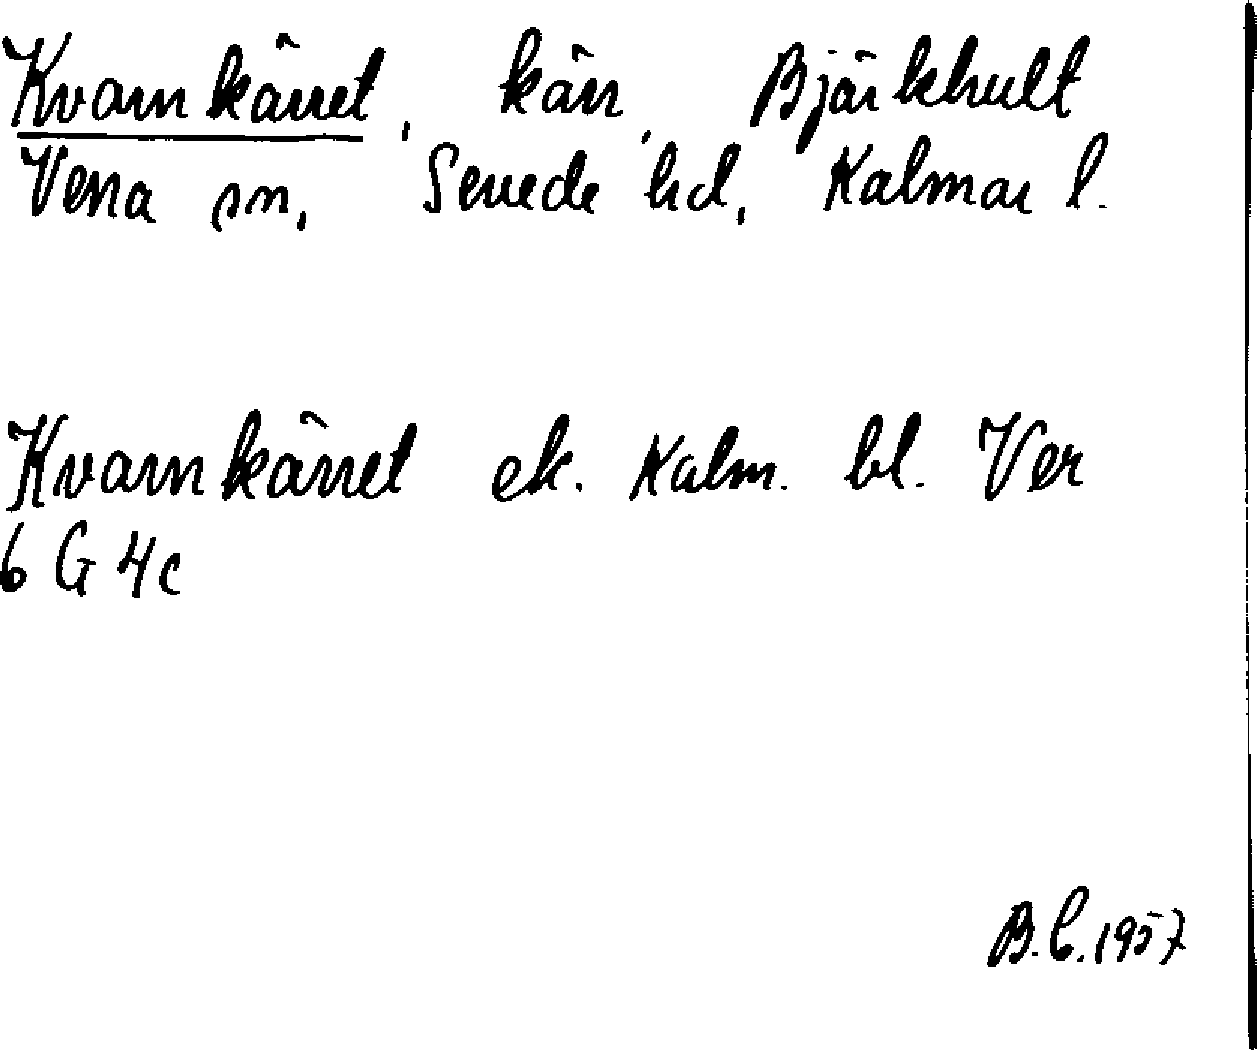 Kvarnkärret, kärr, Björkhult
Vena sn, Sevede hd, Kalmar l.
Kvarnkärret ek. Kalm. bl. Ver
6 G 4c
B.C.1957